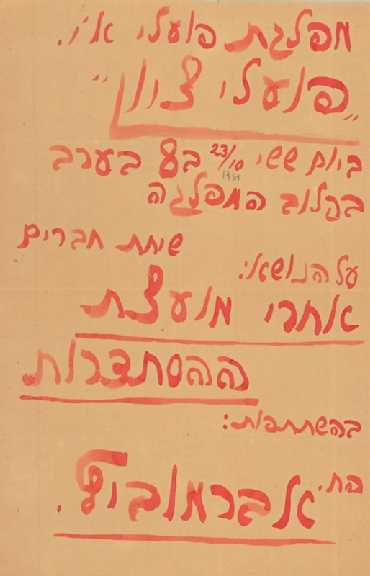 מפלגת פועלי א"י.
"פועלי ציון"
ביום ששי 23/10 ב8 בערב
בקלוב המפלגה
שיחת חברים
על הנושא:
אחרי מועצת
ההסתדרות
בהשתתפות:
הח. אברמוביץ.